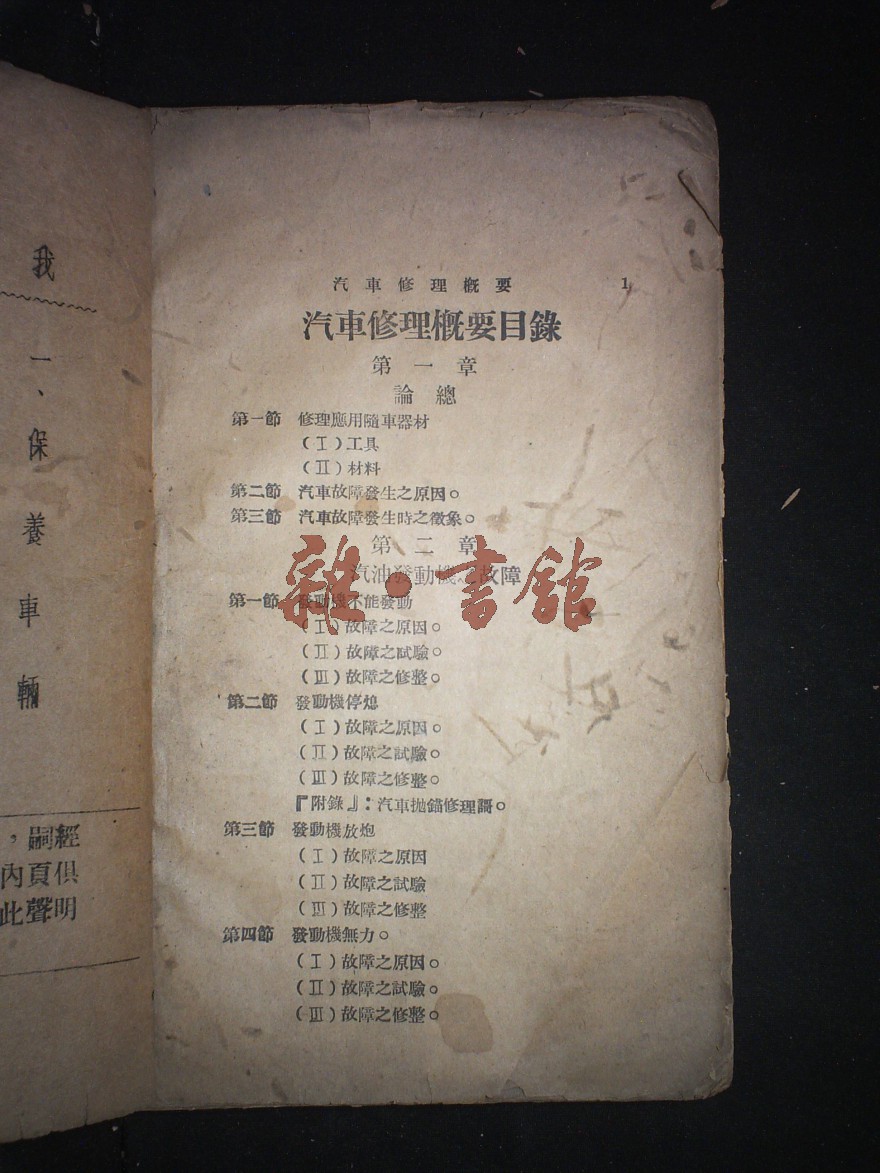 我
一、保養車輛
，嗣經
內頁俱
此聲明
汽車修理概要 1
汽車修理概要目錄
第一章
論總
第一節 修理應用隨車器材
（Ⅰ）工具
（Ⅱ）材料
第二節 汽車故障發生之原因。
第三節 汽車故障發生時之徵象。
第二章
汽油發動機之故障
第一節 發動機不能發動
（Ⅰ）故障之原因。
（Ⅱ）故障之試驗。
（Ⅲ）故障之修整。
第二節 發動機停熄
（Ⅰ）故障之原因。
（Ⅱ）故障之試驗。
（Ⅲ）故障之修整。
『附錄』：汽車拋錨修理謌。
第三節 發動機放炮
（Ⅰ）故障之原因
（Ⅱ）故障之試驗
（Ⅲ）故障之修整
第四節 發動機無力。
（Ⅰ）故障之原因。
（Ⅱ）故障之試驗。
（Ⅲ）故障之修整。
雜·書館